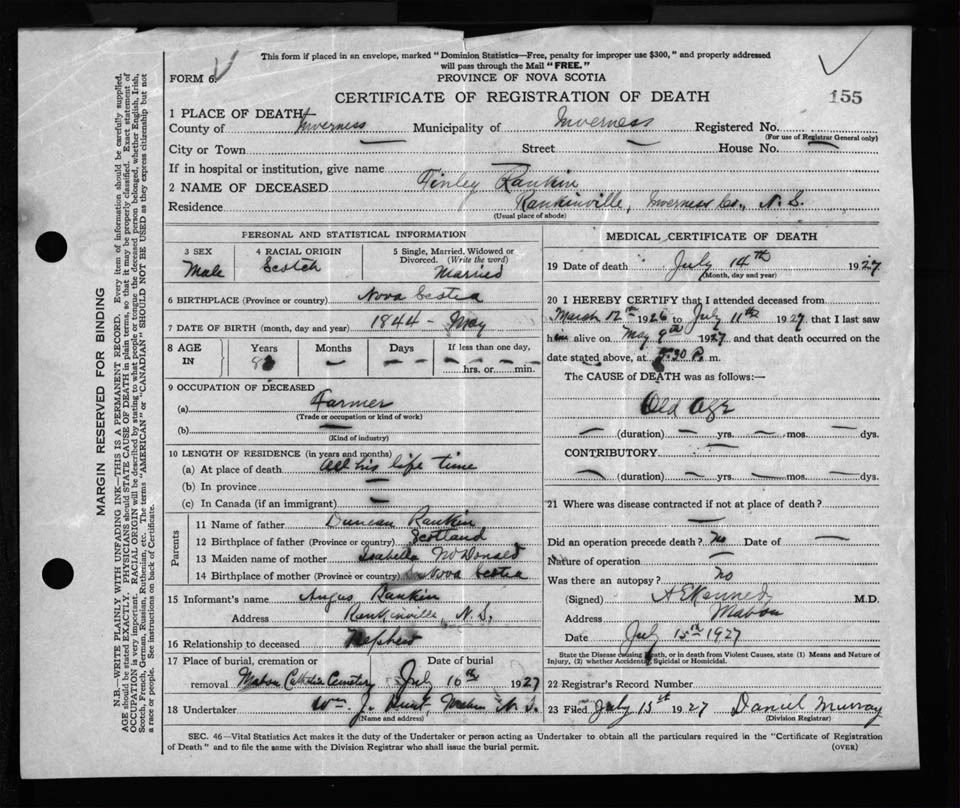 This form if placed in an envelope, marked "Dominion Statistics—Free, penalty for improper use $300," and properly addressed
will pass through the Mail "FREE."
FORM 6.
PROVINCE OF NOVA SCOTIA
CERTIFICATE OF REGISTRATION OF DEATH
155
1 PLACE OF DEATH—
County of Inverness Municipality of Inverness Registered No.
(For use of Registrar General only)
City or Town — Street — House No. —
If in hospital or institution, give name —
2 NAME OF DECEASED Finley Rankin
Residence Rankinville, Inverness Co., N. S.
(Usual place of abode)
PERSONAL AND STATISTICAL INFORMATION
3 SEX 4 RACIAL ORIGIN 5 Single, Married, Widowed or Divorced. (Write the word)
Male Scotch Married
6 BIRTHPLACE (Province or country) Nova Scotia
7 DATE OF BIRTH (month, day and year) 1844 - May
8 AGE IN Years Months Days If less than one day,
— — hrs. or min.
9 OCCUPATION OF DECEASED
(a) Farmer
(Trade or occupation or kind of work)
(b) —
(Kind of industry)
10 LENGTH OF RESIDENCE (in years and months)
(a) At place of death All his life time
(b) In province —
(c) In Canada (if an immigrant) —
Parents
11 Name of father Duncan Rankin
12 Birthplace of father (Province or country) Scotland
13 Maiden name of mother Isabella McDonald
14 Birthplace of mother (Province or country) Nova Scotia
15 Informant's name Angus Rankin
Address Rankinville, N. S.
16 Relationship to deceased Nephew
17 Place of burial, cremation or Date of burial
removal Mabou Catholic Cemetery July 16th 1927
18 Undertaker Wm. J. Mabou N. S.
(Name and address)
MEDICAL CERTIFICATE OF DEATH
19 Date of death July 14th 1927
(Month, day and year)
20 I HEREBY CERTIFY that I attended deceased from
March 12th 1926 to July 11th 1927 that I last saw
him alive on May 9th 1927 and that death occurred on the
date stated above, at 30 P. m.
The CAUSE of DEATH was as follows:—
Old Age
— (duration) — yrs. — mos. — dys.
CONTRIBUTORY —
— (duration) — yrs. — mos. — dys.
21 Where was disease contracted if not at place of death?
—
Did an operation precede death? No Date of —
Nature of operation —
Was there an autopsy? no
(Signed) A E Kennedy M.D.
Address Mabou
Date July 15th 1927
State the Disease causing Death, or in death from Violent Causes, state (1) Means and Nature of
Injury, (2) whether Accidental, Suicidal or Homicidal.
22 Registrar's Record Number
23 Filed July 15th 1927 Daniel Murray
(Division Registrar)
SEC. 46—Vital Statistics Act makes it the duty of the Undertaker or person acting as Undertaker to obtain all the particulars required in the "Certificate of Registration
of Death" and to file the same with the Division Registrar who shall issue the burial permit. (OVER)
MARGIN RESERVED FOR BINDING
N.B.—WRITE PLAINLY WITH UNFADING INK—THIS IS A PERMANENT RECORD. Every item of information should be carefully supplied.
AGE should be stated EXACTLY. PHYSICIANS should STATE CAUSE OF DEATH in plain terms, so that it may be properly classified. Exact statement of
OCCUPATION is very important. RACIAL ORIGIN will be described by stating to what people or tongue the deceased person belonged, whether English, Irish,
Scotch, French, German, Russian, Ruthenian, etc. The terms "AMERICAN" or "CANADIAN" SHOULD NOT BE USED as they express citizenship but not
a race or people. See instructions on back of Certificate.